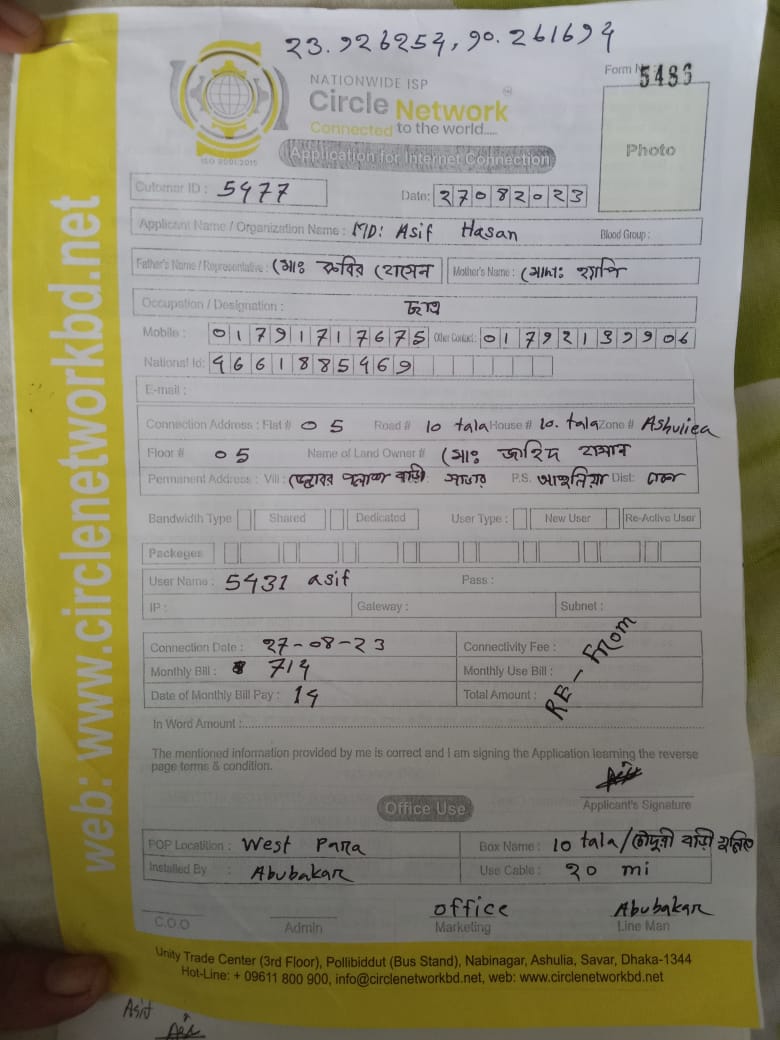 23.926254, 90.261694
Form N 5486
NATIONWIDE ISP
Circle Network
Connected to the world.....
ISO 9001:2015
Application for Internet Connection
Photo
Cutomar ID : 5477
Date: 27082023
Applicant Name / Organization Name : MD: Asif Hasan
Blood Group :
Father's Name / Representative : মোঃ কবির হোসেন
Mother's Name : মোসাঃ হ্যাপি
Occupation / Designation : ছাত্র
Mobile : 01791717675 Other Contact : 01792139906
National Id: 4661885469
E-mail :
Connection Address : Flat # 05 Road # 10 tala House # 10. tala Zone # Ashuliea
Floor # 05 Name of Land Owner # মোঃ জাহিদ হাসান
Permanent Address : Vill : পলাশ বাড়ী সাভার P.S. আশুলিয়া Dist: ঢাকা
Bandwidth Type Shared Dedicated User Type : New User Re-Active User
Packeges
User Name : 5431 asif Pass :
IP : Gateway : Subnet :
Connection Date : 27-08-23 Connectivity Fee :
Monthly Bill : 714 Monthly Use Bill :
Date of Monthly Bill Pay : 14 Total Amount :
RE - From
In Word Amount :
The mentioned information provided by me is correct and I am signing the Application learning the reverse
page terms & condition.
Applicant's Signature
Office Use
POP Locatition : West Para Box Name : 10 tala / চৌধুরী বাড়ী
Installed By : Abubakar Use Cable : 20 mi
office Abubakar
C.O.O Admin Marketing Line Man
Unity Trade Center (3rd Floor), Pollibiddut (Bus Stand), Nabinagar, Ashulia, Savar, Dhaka-1344
Hot-Line: + 09611 800 900, info@circlenetworkbd.net, web: www.circlenetworkbd.net
web: www.circlenetworkbd.net
Asif